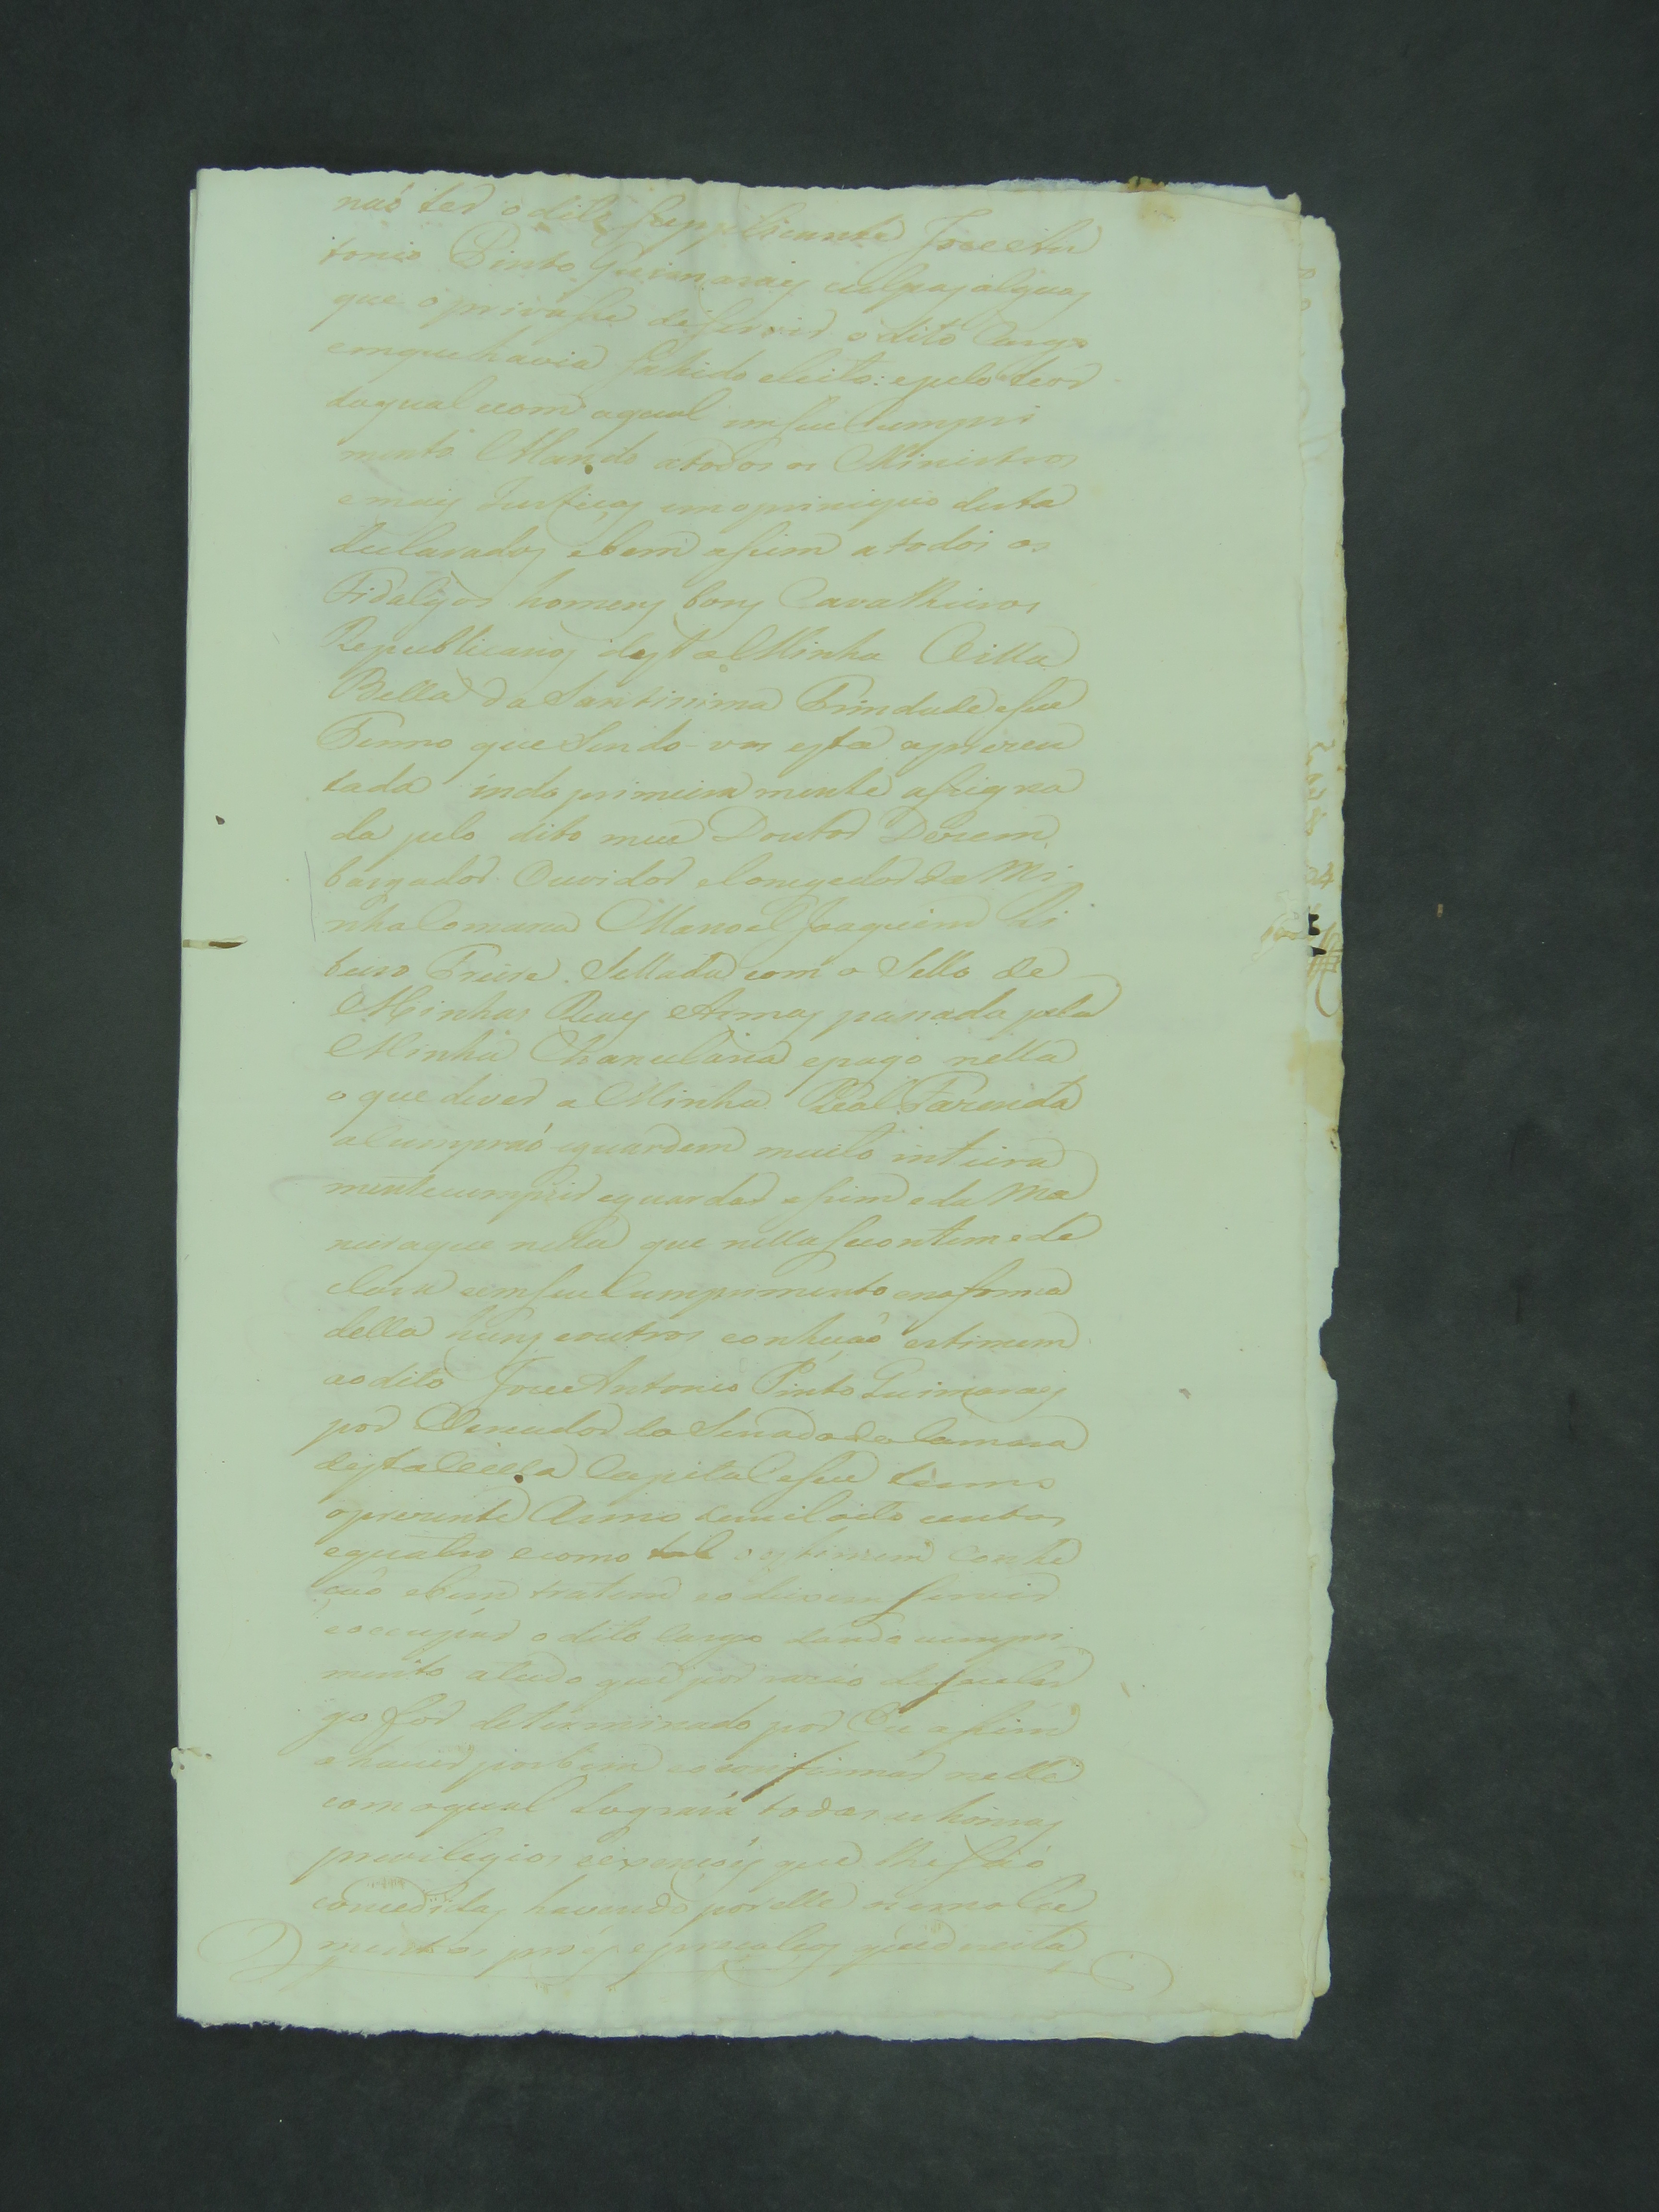 naó ter o dito Supplicante Joze An
tonio Pinto Guimaraẽs culpas algũas
que o privasse deservir o dito Cargo
emque havia Sahido eleito: epelo teor
daqual ecom aqual emseu Cumpri
mento Mando atodos os Ministros
emais Justiças emoprincipio desta
declarados ebem assim a todos os
Fidalgos homens bons Cavalheiros
Republicanos desta Minha Villa
Bella da Santissima Trindade eseu
Termo que Sendo-vos esta aprezen
tada indo primeiramente assigna
da pelo dito meu Doutor Dezem
bargador Ouvidor eCorregedor da Mi
nha Comarca Manoel Joaquim Ri
beiro Freire Sellada com o Sello de
Minhas Reaes Armas passada pela
Minha Chancelaria epago nella
o que dever a Minha Real Fazenda
aCumpraó eguardem muito inteira
mente cumprir eguardar assim eda Ma
neira que nella que nella secontem ede
clara eemseu Cumprimento enaforma
della huns eoutros conheçaó estimem
aodito Joze Antonio Pinto Guimaraẽs
por Vereador do Senado da Camara
desta Villa Capital eseu termo
oprezente Anno demil oito centos
equatro ecomo tal oestimem conhe
çaó ebem tratem eodeixem servir
eoccupar o dito Cargo dando cumpri
mento atudo que por razaó deseuCar
go for determinado por Eu assim
o haver porbem eoconfirmar nelle
com oqual Lograrà todas as honras
previlegios eizençoẽs que lhe saó
concedidas havendo porelle os emolu
mentos proẽs eprecalços que direita